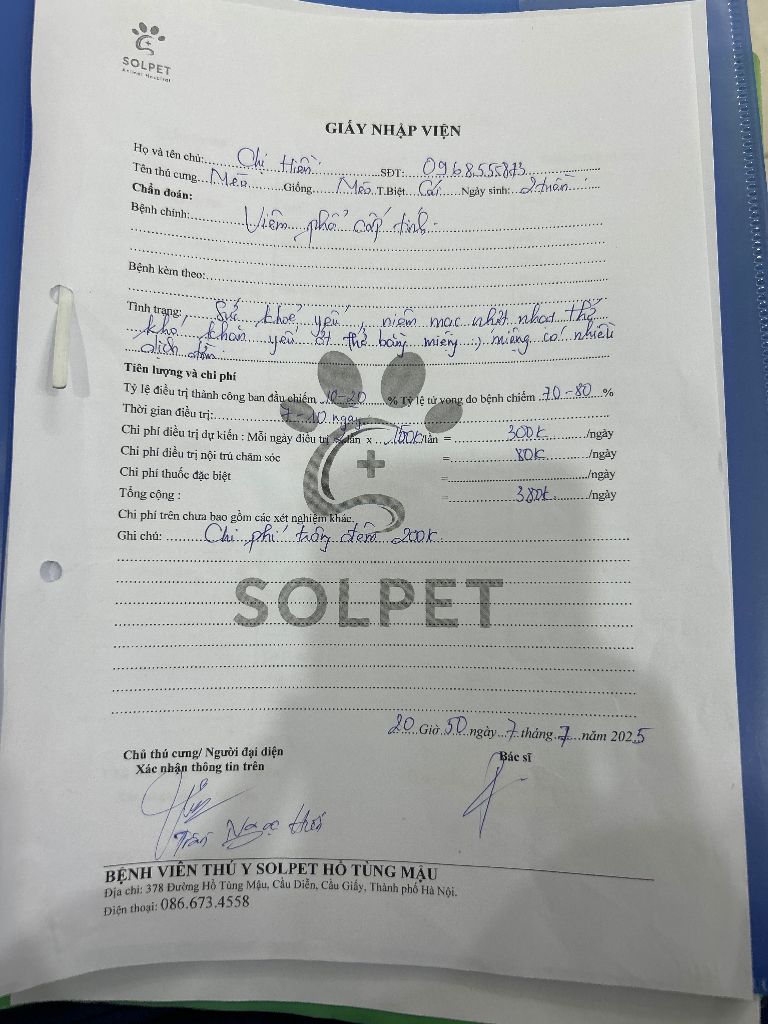 SOLPET
Animal Hospital
GIẤY NHẬP VIỆN
Họ và tên chủ: Chị Hiền SĐT: 0968555873
Tên thú cưng Mèo Giống Mèo T.Biệt Cái Ngày sinh: 2 tuần
Chẩn đoán:
Bệnh chính: Viêm phổi cấp tính.
Bệnh kèm theo:
Tình trạng: Sức khoẻ yếu, niêm mạc nhợt nhạt thở
khó khăn, yếu ớt thở bằng miệng, miệng có nhiều
dịch đờm
Tiên lượng và chi phí
Tỷ lệ điều trị thành công ban đầu chiếm 10-20 % Tỷ lệ tử vong do bệnh chiếm 70-80 %
Thời gian điều trị: 7-10 ngày
Chi phí điều trị dự kiến : Mỗi ngày điều trị lần x 100k/lần = 300k /ngày
Chi phí điều trị nội trú chăm sóc = 80k /ngày
Chi phí thuốc đặc biệt = /ngày
Tổng cộng : = 380k /ngày
Chi phí trên chưa bao gồm các xét nghiệm khác.
Ghi chú: Chi phí trông đêm 200k.
SOLPET
20 Giờ 50 ngày 7 tháng 7 năm 2025
Chủ thú cưng/ Người đại diện Bác sĩ
Xác nhận thông tin trên
Trần Ngọc
BỆNH VIÊN THÚ Y SOLPET HỒ TÙNG MẬU
Địa chỉ: 378 Đường Hồ Tùng Mậu, Cầu Diễn, Cầu Giấy, Thành phố Hà Nội.
Điện thoại: 086.673.4558